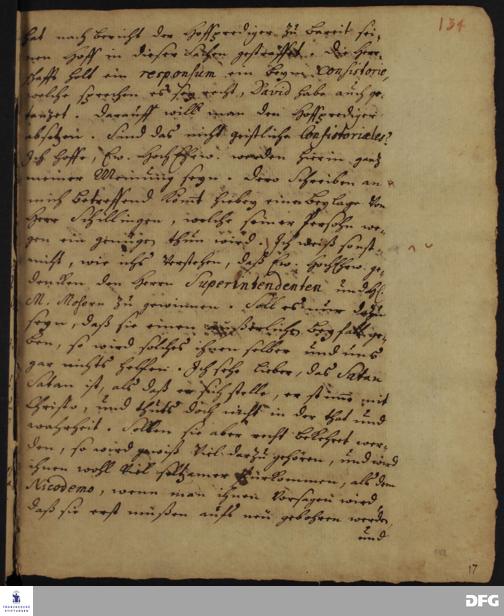 134
hat nach bericht der Hoffprediger zu Bareit sei-
nen Hoff in dieser sachen gestraffet. Die Herr-
schafft holt ein responsum ein bey  Consistorio,
welche sprechen es sey recht, David habe auch ge-
tantzet. Darauff will man den Hoffprediger
absetzen. Sind das nicht geistliche Consistoriales?
Ich hoffe, Ew. HochEhrw. werden hierin gantz
meiner Meinung seyn. Dero Schreiben an
mich betreffend komt hiebey eine beylage von
Herr Schillingen, welche seiner Persohn we-
gen ein gnüge thun wird. Ich weiß sonst
nicht, wie ichs verstehen, daß Ew. HochEhrw. ge-
dencken den Herrn Superintendenten und H.
M. Mohorn zu gewinnen. Soll es nur dazu
seyn, daß sie einen äußerlichen beyfall ge-
ben, so wird solches ihnen selber und uns
gar nichts helffen. Ich sehe lieber, das Satan
Satan ist, als daß er sich stelle, er stimme mit
Christo, und thuts doch nicht in der that und
wahrheit. Sollen sie aber recht bekehret wer-
den, so wird gewiß viel darzu gehören, und wird
ihnen wohl viel seltzamer fürkommen, als dem
Nicodemo, wenn man ihnen vorsagen wird,
daß sie erst müssen aufs neu gebohren werden,
und
17
FRANCKESCHE STIFTUNGEN
DFG